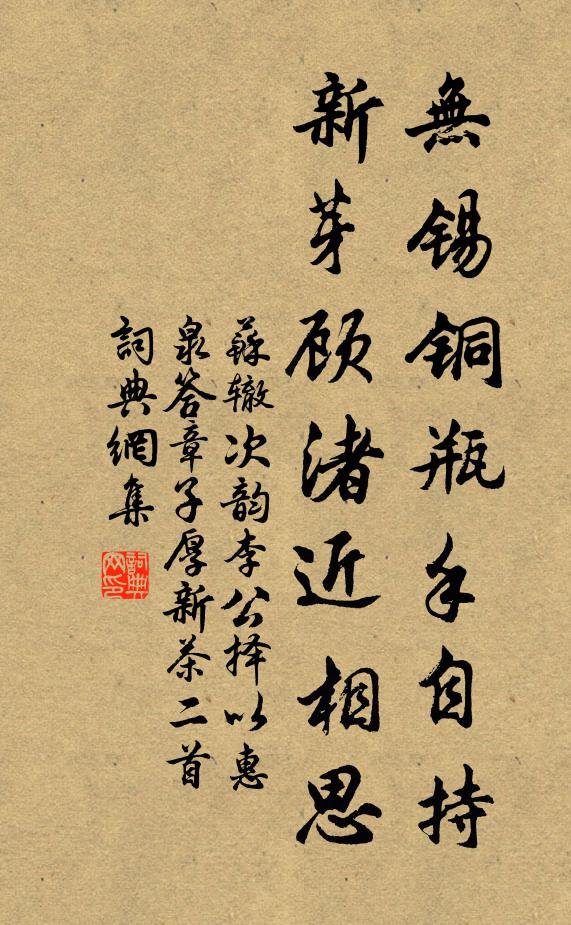 無錫銅瓶手自持
新芽顾渚近相思
蘇辙次韵李公择以惠
泉答章子厚新茶二首
詞典網集
詞典
网印